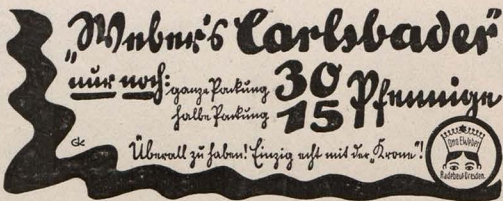 „Weber's Carlsbader“
nur noch: ganze Packung 30
halbe Packung 15 Pfennige
GK
Überall zu haben! Einzig echt mit der „Krone“!
Otto E. Weber
Radebeul-Dresden